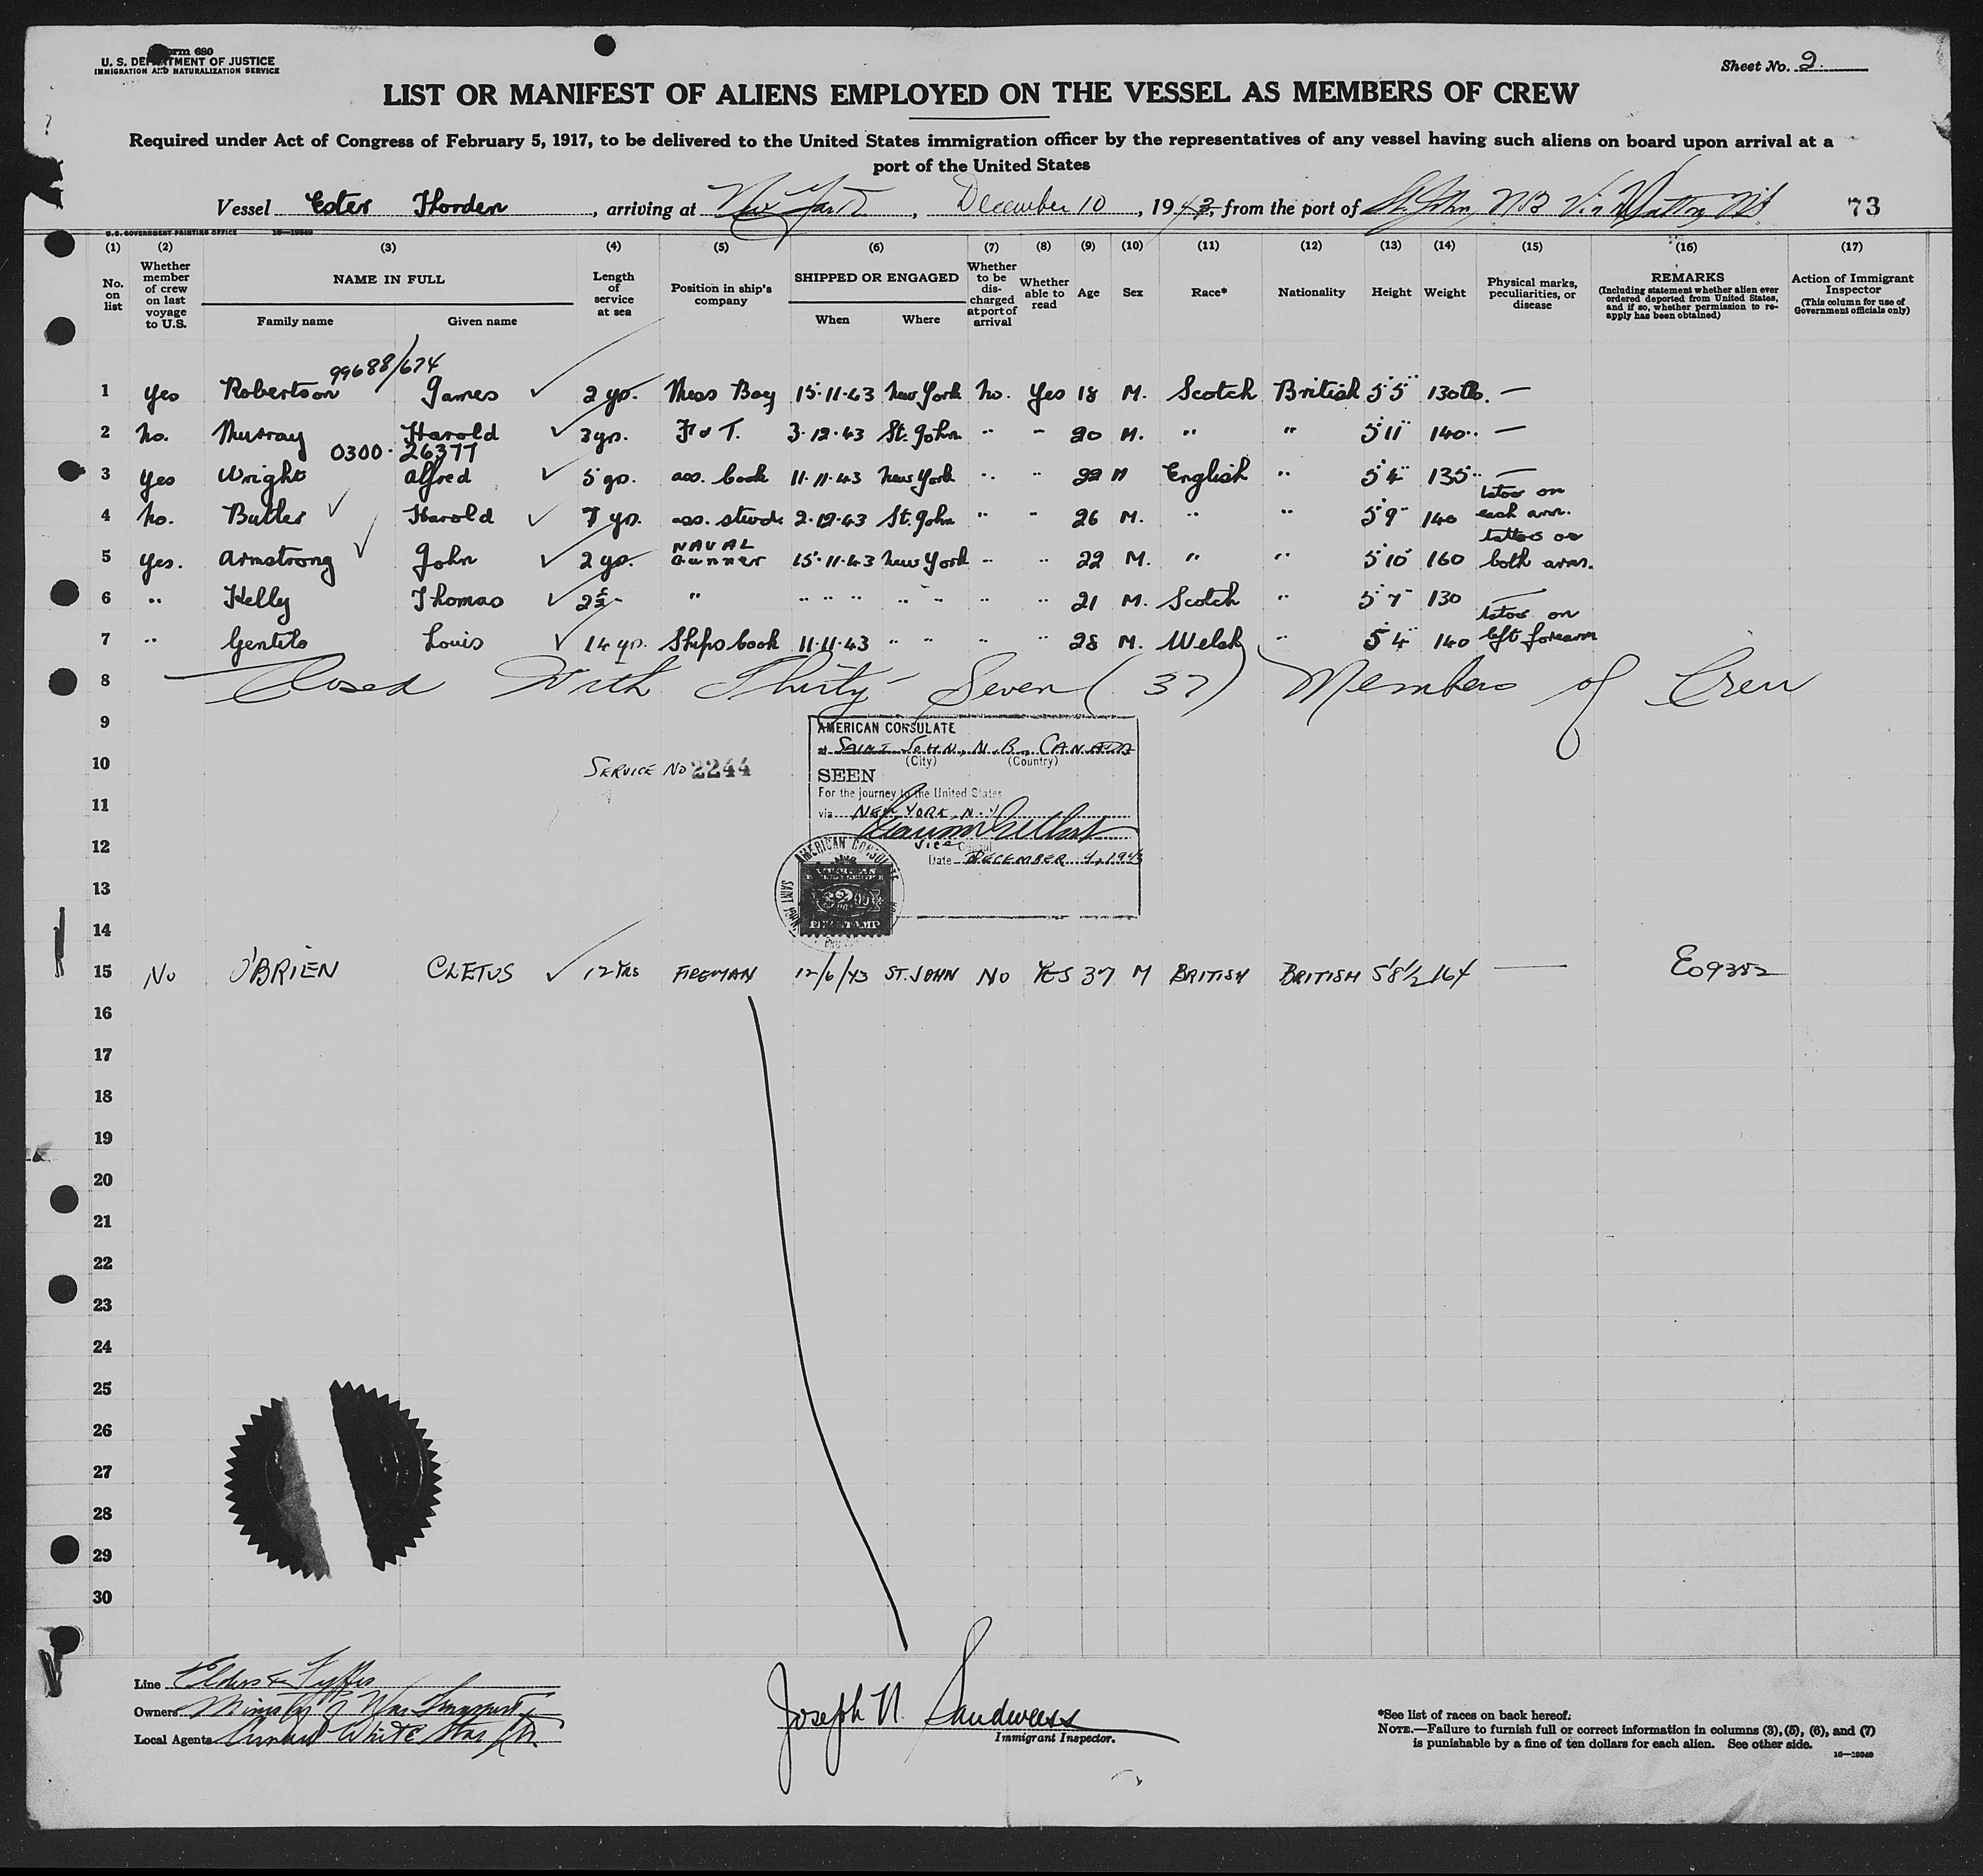 Form 680
U. S. DEPARTMENT OF JUSTICE
IMMIGRATION AND NATURALIZATION SERVICE
Sheet No. 2.
LIST OR MANIFEST OF ALIENS EMPLOYED ON THE VESSEL AS MEMBERS OF CREW
Required under Act of Congress of February 5, 1917, to be delivered to the United States immigration officer by the representatives of any vessel having such aliens on board upon arrival at a
port of the United States
Vessel Ester Thorden, arriving at New York, December 10, 1943, from the port of St. John, NB Via
73
U.S. GOVERNMENT PRINTING OFFICE 16—19349
(1) (2) (3) (4) (5) (6) (7) (8) (9) (10) (11) (12) (13) (14) (15) (16) (17)
No. on list
Whether member of crew on last voyage to U.S.
NAME IN FULL
Family name Given name
Length of service at sea
Position in ship's company
SHIPPED OR ENGAGED
When Where
Whether to be discharged at port of arrival
Whether able to read
Age
Sex
Race*
Nationality
Height
Weight
Physical marks, peculiarities, or disease
REMARKS
(Including statement whether alien ever ordered deported from United States, and if so, whether permission to re-apply has been obtained)
Action of Immigrant Inspector
(This column for use of Government officials only)
99688/674
1 Yes Robertson James ✓ 2 yr. Mess Boy 15-11-43 New York No. Yes 18 M. Scotch British 5'5" 130lb. —
2 No. Murray Harold ✓ 3 yr. F & T. 3-12-43 St. John " " 20 M. " " 5'11" 140 " —
0300-26377
3 Yes Wright Alfred ✓ 5 yr. ass. Cook 11-11-43 New York " " 22 M English " 5'4" 135 " —
4 No. Butler ✓ Harold ✓ 7 yr. ass. stwd. 2-12-43 St. John " " 26 M. " " 5'9" 140 tatoo on each arm.
5 Yes. Armstrong ✓ John ✓ 2 yr. NAVAL Gunner 15-11-43 New York " " 22 M. " " 5'10" 160 tattoo on both arms.
6 " Kelly Thomas ✓ 2½ " " " " " " " " " 21 M. Scotch " 5'7" 130 —
7 " Gentile Louis ✓ 14 yr. Ships Cook 11-11-43 " " " " 28 M. Welsh " 5'4" 140 tatoo on left forearm
8 Closed With Thirty Seven (37) Members of Crew
9
AMERICAN CONSULATE
at SAINT JOHN, N.B., CANADA
(City) (Country)
10 SERVICE NO 2244
SEEN
For the journey to the United States
11
via NEW YORK, N.Y
12
Vice Consul
Date DECEMBER 4, 1943
AMERICAN CONSULATE
SAINT JOHN
13
14
15 No O'BRIEN CLETUS ✓ 12 YRS FIREMAN 12/6/43 ST. JOHN NO YES 37 M BRITISH BRITISH 5'8½ 164 — E09352
16
17
18
19
20
21
22
23
24
25
26
27
28
29
30
Line Elders & Fyffes
Owners Ministry of War Transport
Local Agents Cunard White Star Ltd.
Joseph N. Sandweiss
Immigrant Inspector.
*See list of races on back hereof.
NOTE.—Failure to furnish full or correct information in columns (3), (5), (6), and (7)
is punishable by a fine of ten dollars for each alien. See other side.
16—19349